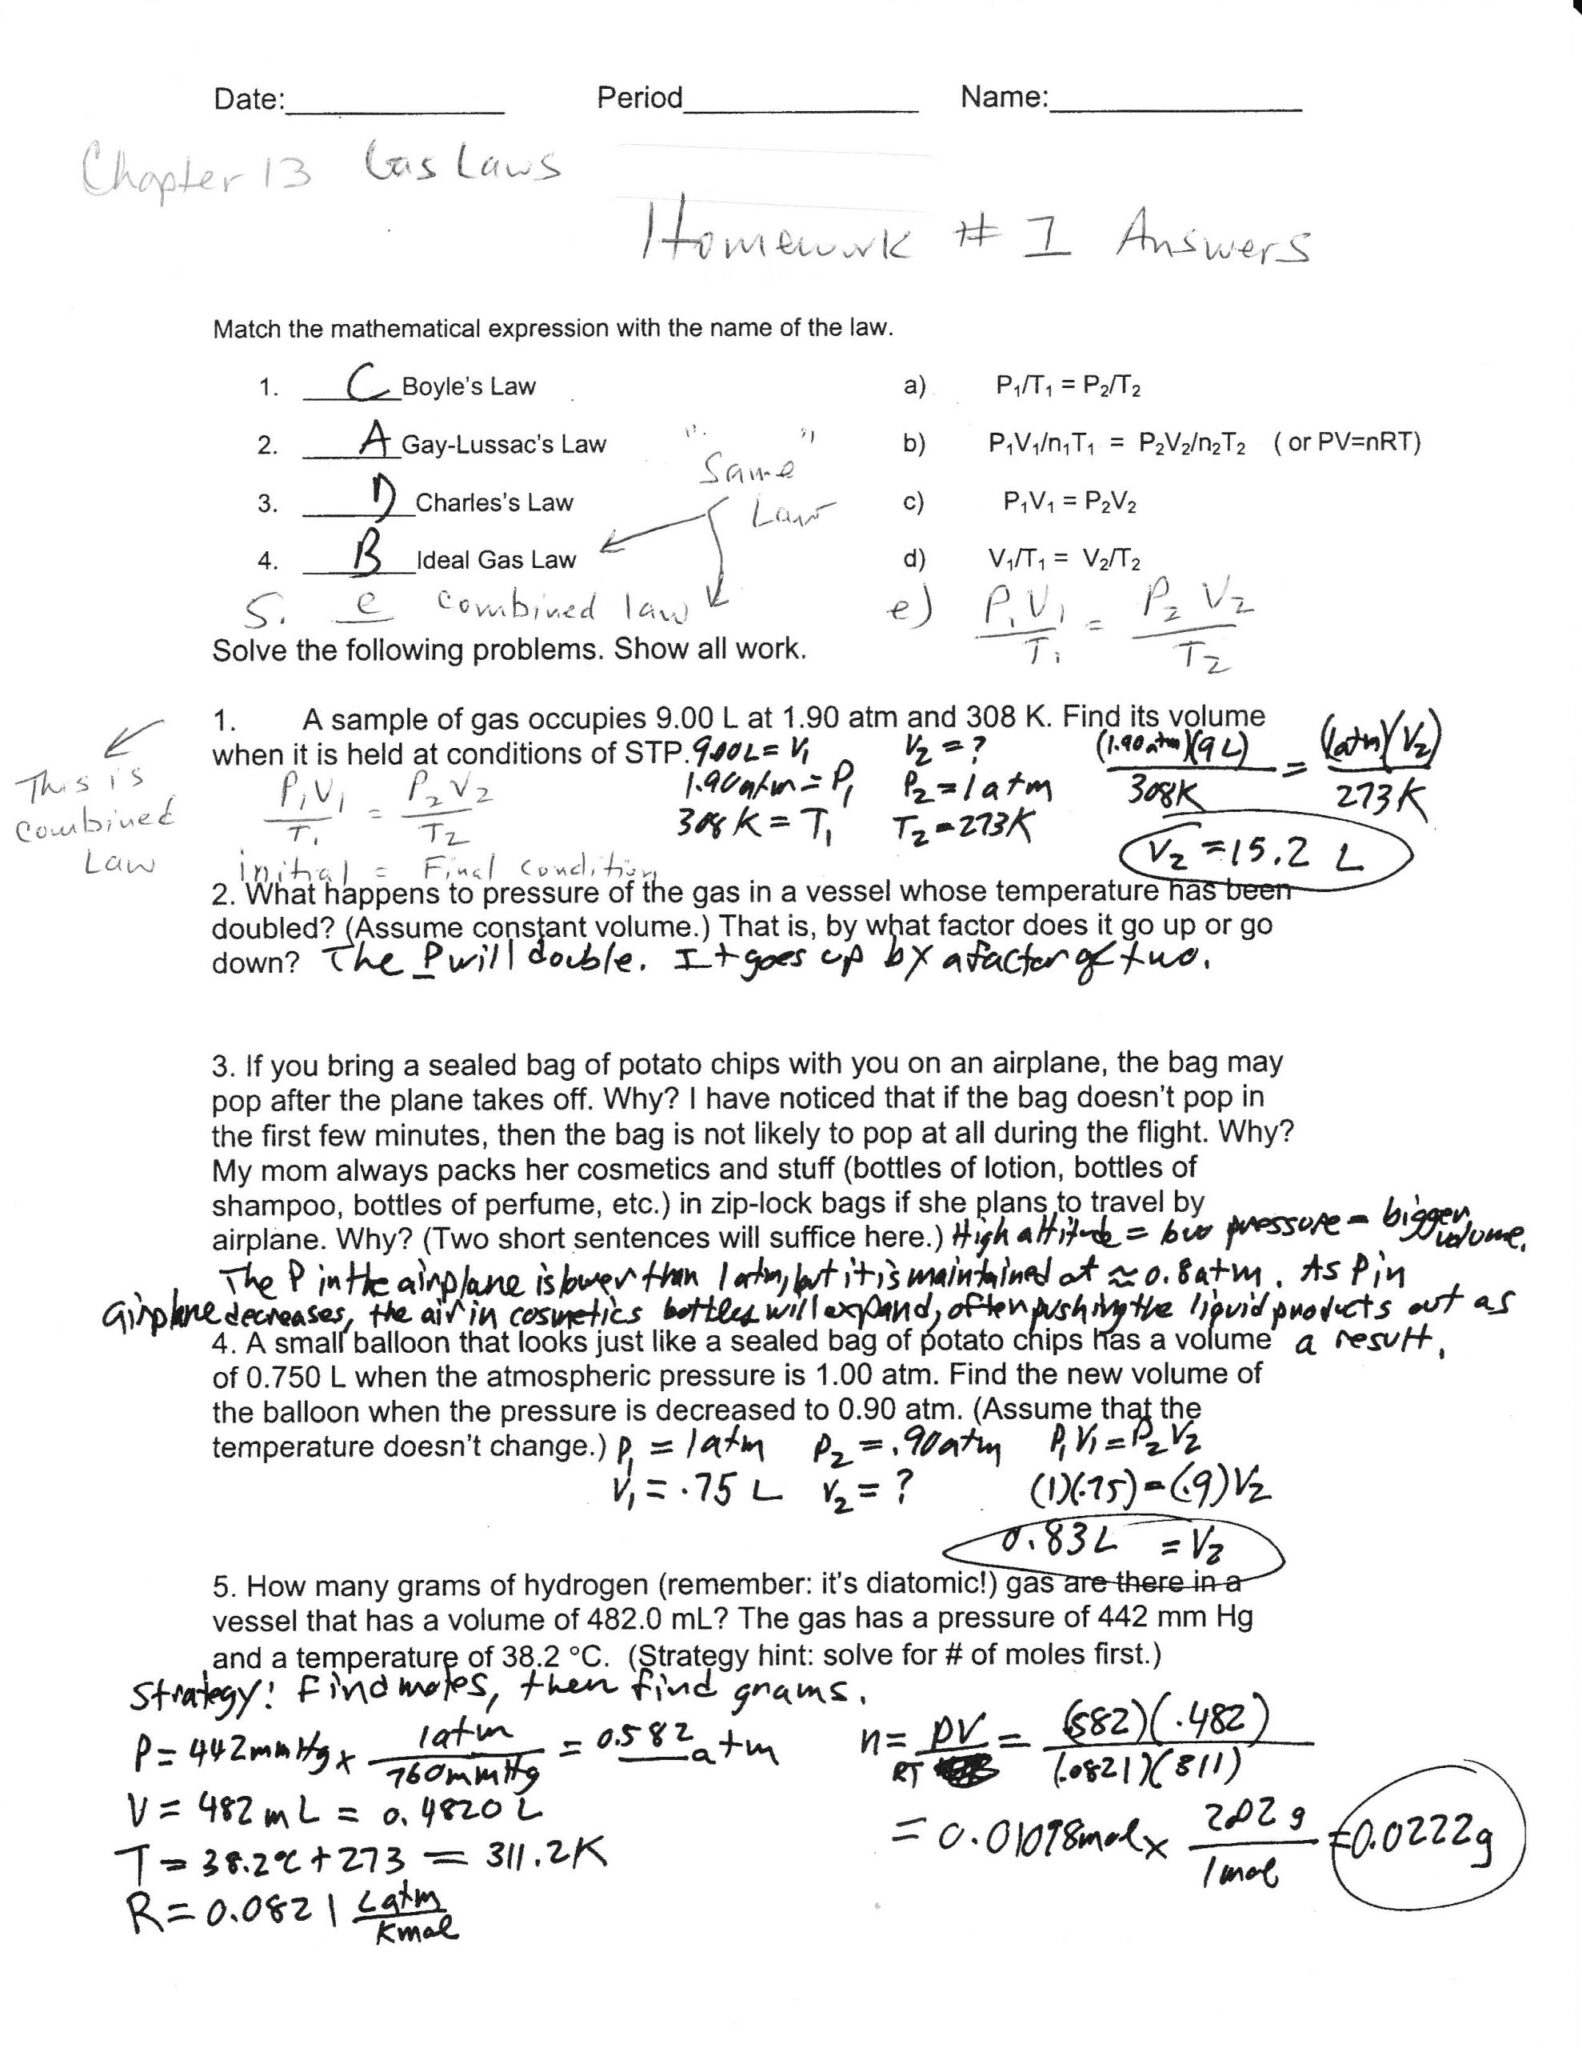 Date: Period Name:
Chapter 13 Gas Laws
Homework # 1 Answers
Match the mathematical expression with the name of the law.
1. C Boyle's Law a) P₁/T₁ = P₂/T₂
2. A Gay-Lussac's Law b) P₁V₁/n₁T₁ = P₂V₂/n₂T₂ ( or PV=nRT)
3. D Charles's Law c) P₁V₁ = P₂V₂
4. B Ideal Gas Law d) V₁/T₁ = V₂/T₂
" Same Law "
5. e combined law e) P₁V₁/T₁ = P₂V₂/T₂
Solve the following problems. Show all work.
1. A sample of gas occupies 9.00 L at 1.90 atm and 308 K. Find its volume
when it is held at conditions of STP. 9.00L = V₁ V₂ = ? (1.90atm)(9L)/308K = (1atm)(V₂)/273K
This is combined Law
P₁V₁/T₁ = P₂V₂/T₂ 1.90atm = P₁ P₂ = 1atm
308K = T₁ T₂ = 273K
V₂ = 15.2 L
initial = Final condition
2. What happens to pressure of the gas in a vessel whose temperature has been
doubled? (Assume constant volume.) That is, by what factor does it go up or go
down? The P will double. It goes up by a factor of two.
3. If you bring a sealed bag of potato chips with you on an airplane, the bag may
pop after the plane takes off. Why? I have noticed that if the bag doesn't pop in
the first few minutes, then the bag is not likely to pop at all during the flight. Why?
My mom always packs her cosmetics and stuff (bottles of lotion, bottles of
shampoo, bottles of perfume, etc.) in zip-lock bags if she plans to travel by
airplane. Why? (Two short sentences will suffice here.) High altitude = low pressure = bigger volume.
The P in the airplane is lower than 1 atm, but it is maintained at ≈ 0.8 atm. As P in
airplane decreases, the air in cosmetics bottles will expand, often pushing the liquid products out as
a result.
4. A small balloon that looks just like a sealed bag of potato chips has a volume
of 0.750 L when the atmospheric pressure is 1.00 atm. Find the new volume of
the balloon when the pressure is decreased to 0.90 atm. (Assume that the
temperature doesn't change.) P₁ = 1atm P₂ = .90atm P₁V₁ = P₂V₂
V₁ = .75 L V₂ = ? (1)(.75) = (.9)V₂
0.83L = V₂
5. How many grams of hydrogen (remember: it's diatomic!) gas are there in a
vessel that has a volume of 482.0 mL? The gas has a pressure of 442 mm Hg
and a temperature of 38.2 °C. (Strategy hint: solve for # of moles first.)
Strategy: Find moles, then find grams.
P = 442mmHg x 1atm/760mmHg = 0.582 atm n = PV/RT = (.582)(.482)/(.0821)(311)
V = 482 mL = 0.4820 L
= 0.01098mol x 2.02g/1mol = 0.0222g
T = 38.2°C + 273 = 311.2K
R = 0.0821 Latm/Kmol